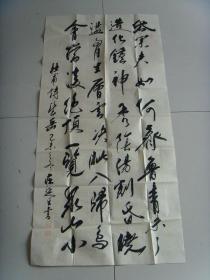 岱宗夫如何齊魯青未了
造化鍾神秀陰陽割昏曉
盪胸生層雲決眥入歸鳥
會當凌絕頂一覽眾山小
杜甫詩望岳 書